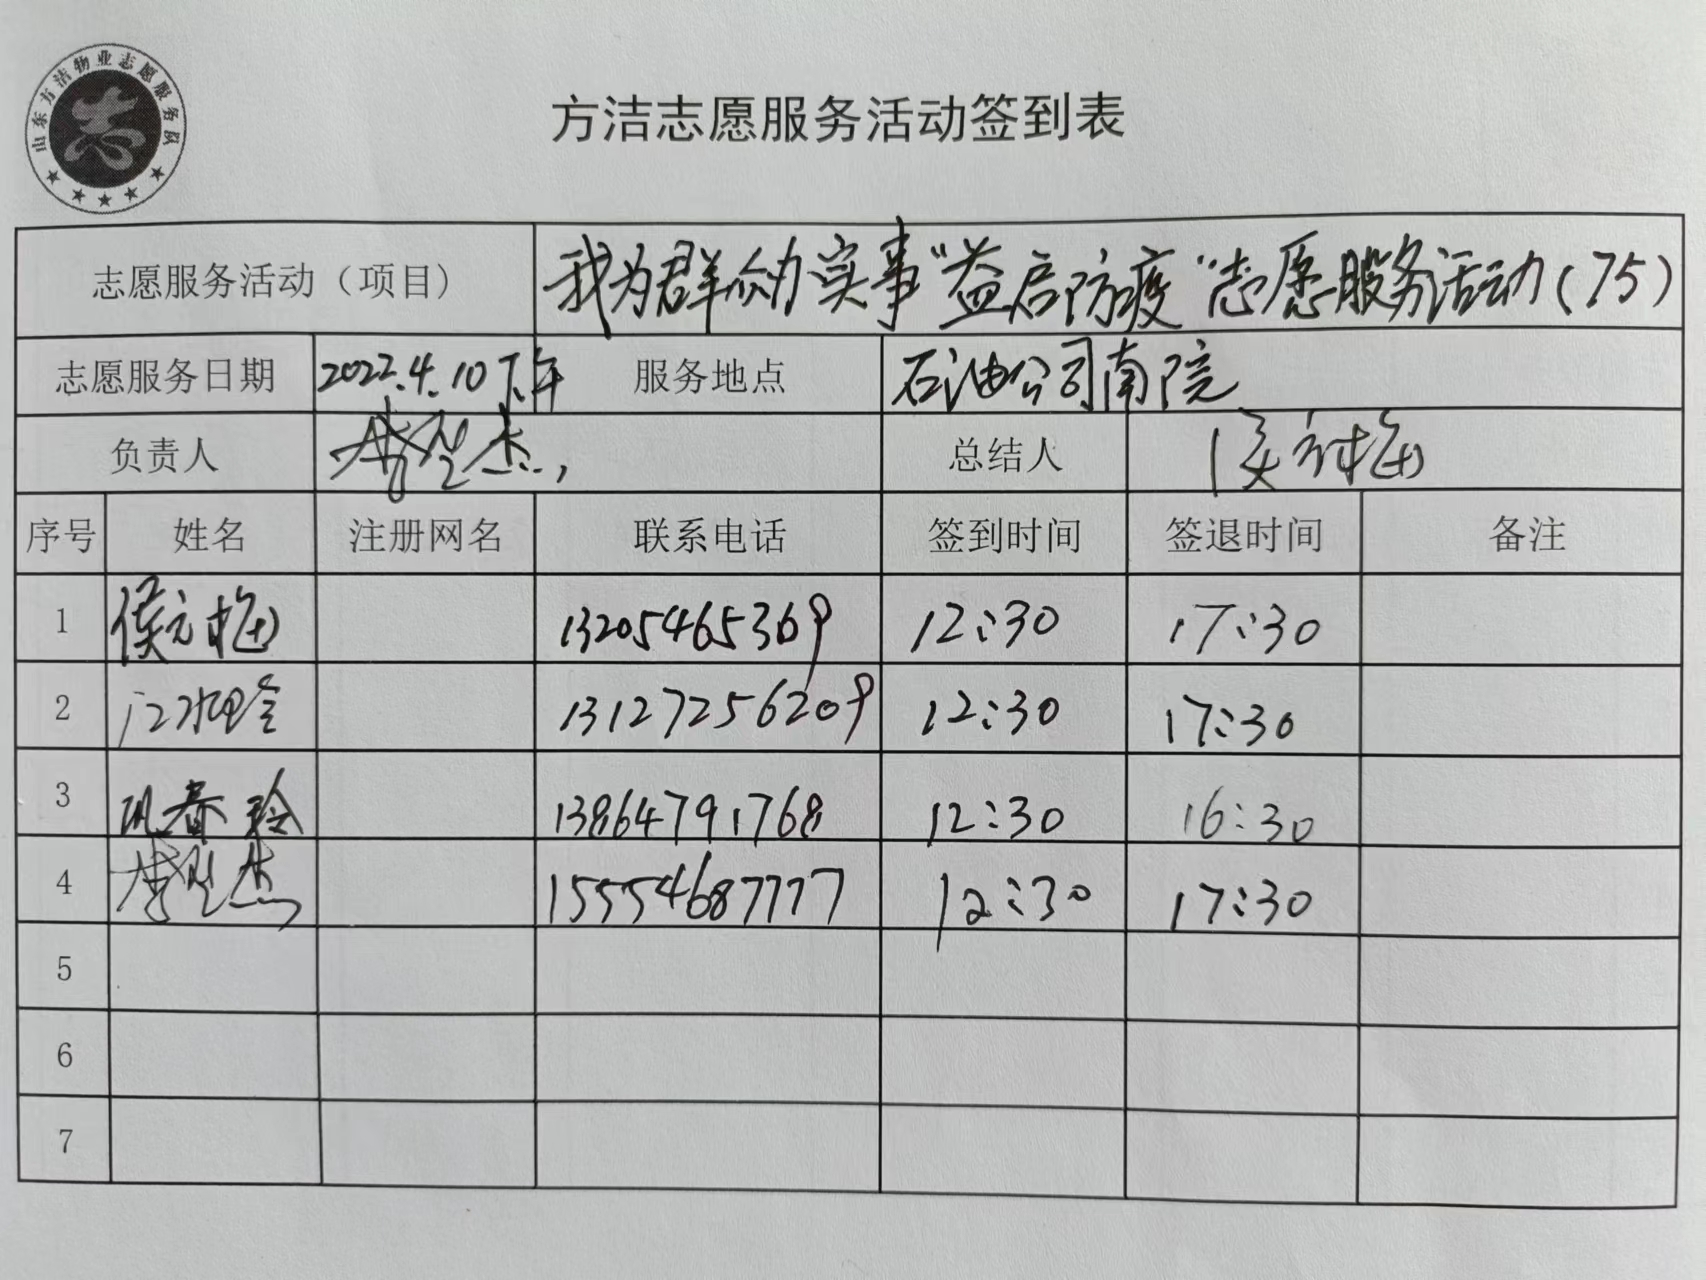 山东方洁物业志愿服务队
志
方洁志愿服务活动签到表
志愿服务活动（项目） 我为群众办实事"益启防疫"志愿服务活动(75)
志愿服务日期 2022.4.10下午 服务地点 石油公司南院
负责人 总结人
序号 姓名 注册网名 联系电话 签到时间 签退时间 备注
1 侯元梅 13205465369 12:30 17:30
2 13127256209 12:30 17:30
3 巩春玲 13864791768 12:30 16:30
4 15554687777 12:30 17:30
5
6
7